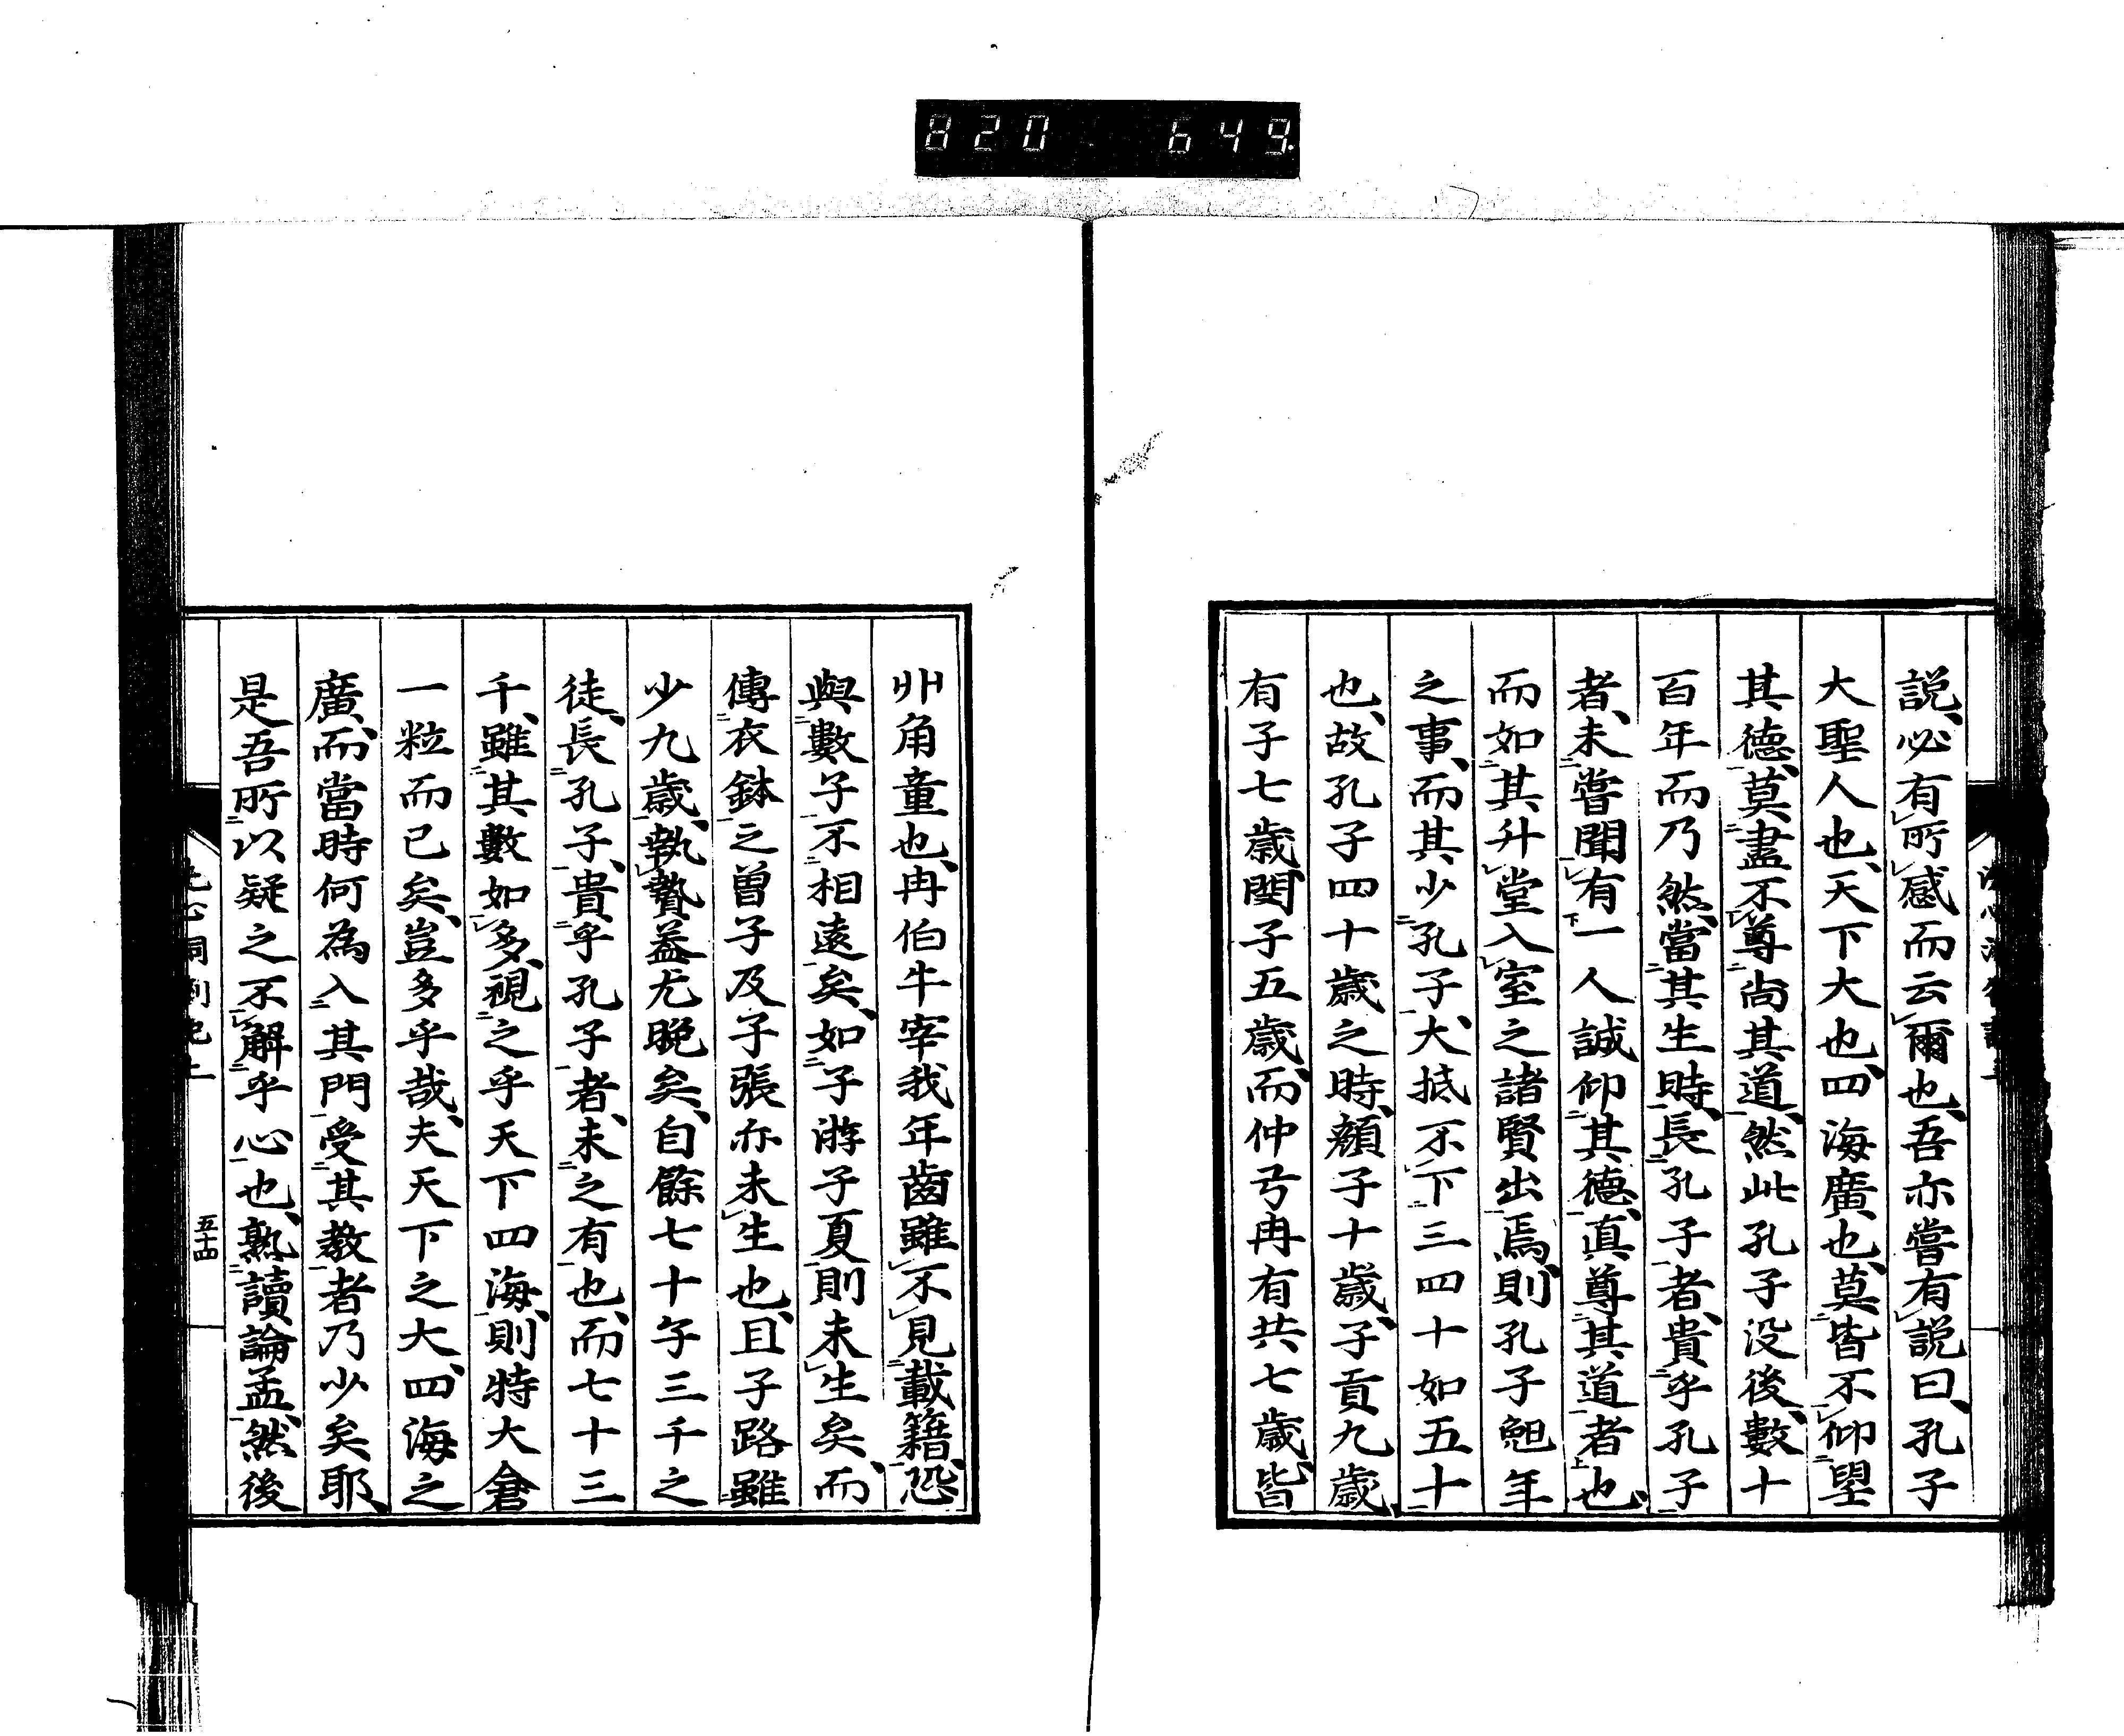 820 649
説、必有所感而云爾也、吾亦嘗有説曰、孔子
大聖人也、天下大也、四海廣也、莫皆不仰望
其德、莫盡不尊尚其道、然此孔子没後、數十
百年而乃然、當其生時、長孔子者、貴乎孔子
者、未嘗聞有一人誠仰其德、真尊其道者也、
而如其升堂入室之諸賢出焉、則孔子魁年
之事、而其少孔子、大抵不下三四十如五十
也、故孔子四十歲之時、顏子十歲、子貢九歲、
有子七歲、閔子五歲、而仲弓冉有共七歲、皆
丱角童也、冉伯牛宰我年齒雖不見載籍、恐
與數子不相遠矣、如子游子夏、則未生矣、而
傳衣鉢之曾子及子張亦未生也、且子路雖
少九歲、執贄益尤晚矣、自餘七十子三千之
徒、長孔子、貴乎孔子者、未之有也、而七十三
千、雖其數如多、視之乎天下四海、則特大倉
一粒而已矣、豈多乎哉、夫天下之大、四海之
廣、而當時何為入其門受其教者乃少矣耶、
是吾所以疑之不解乎心也、熟讀論孟、然後
五十四